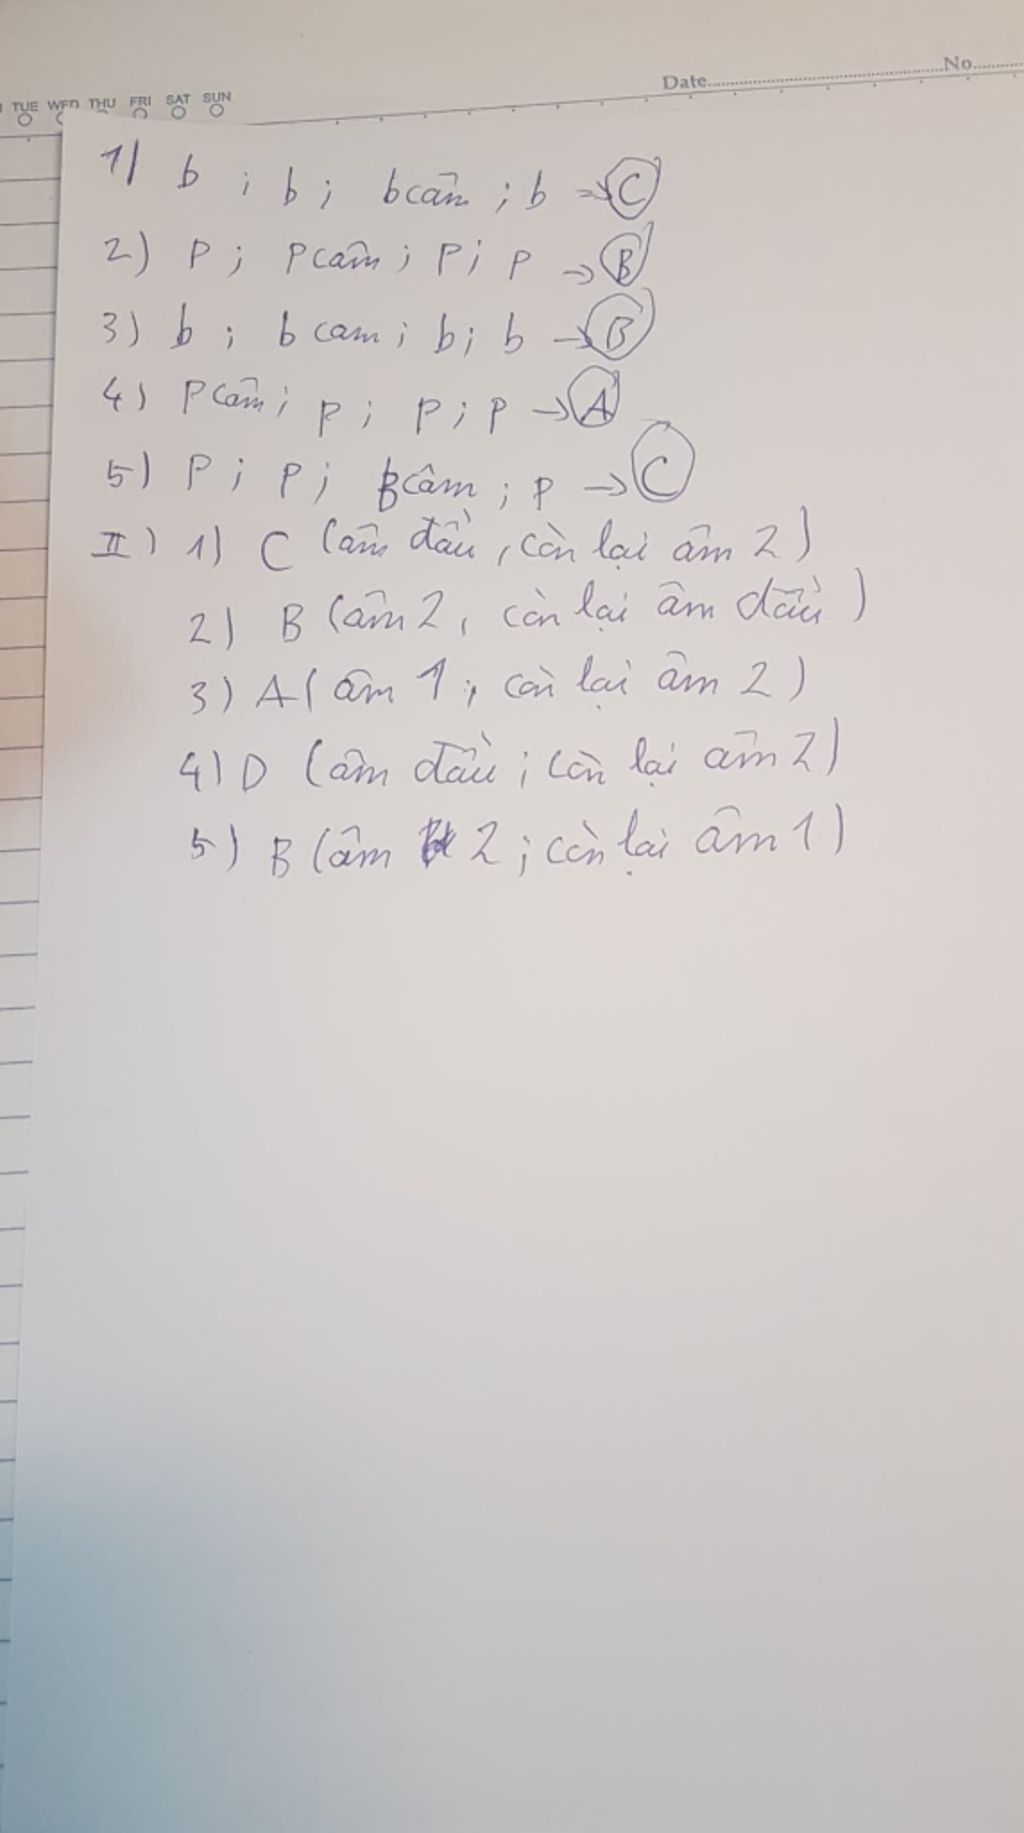 Date No
TUE WED THU FRI SAT SUN
1) b ; b ; b câm ; b → C
2) P ; P câm ; P ; P → B
3) b ; b cam ; b ; b → B
4) P câm ; P ; P ; P → A
5) P ; P ; câm ; P → C
II) 1) C (âm đầu, còn lại âm 2)
2) B (âm 2, còn lại âm đầu)
3) A ( âm 1 ; còn lại âm 2)
4) D (âm đầu ; còn lại âm 2)
5) B (âm 2 ; còn lại âm 1)